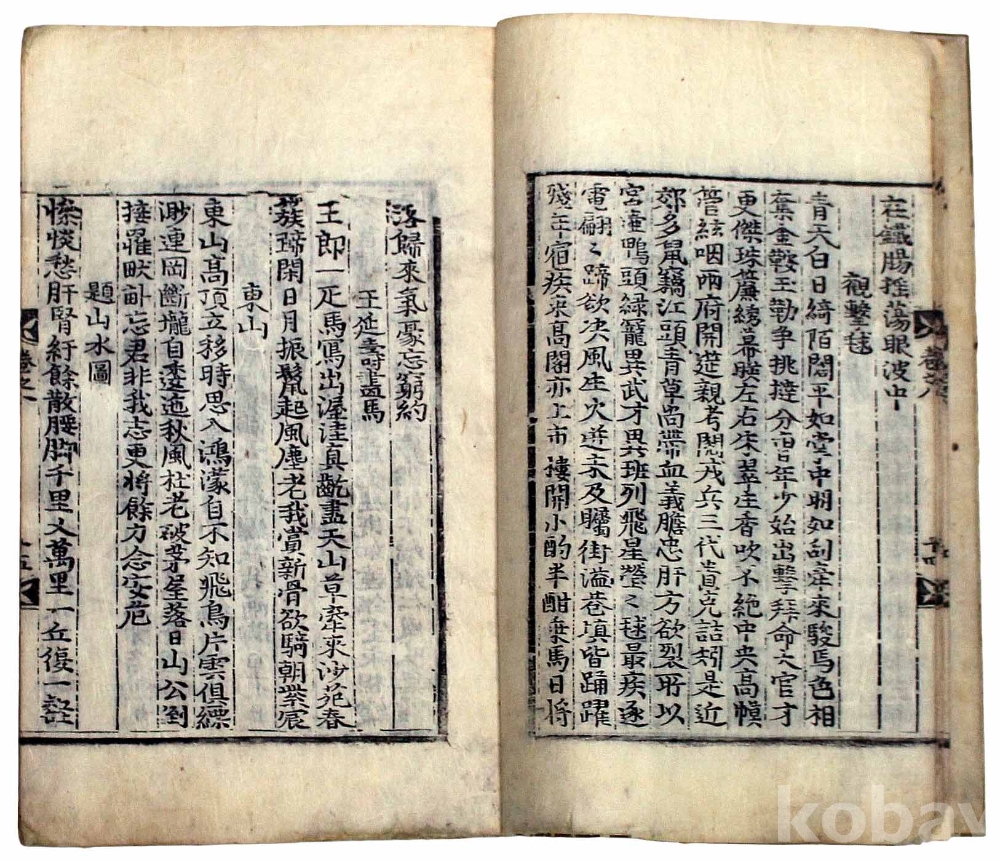 在鐵腸搖蕩眼波中
觀擊毬
青天白日綺陌闊平如堂中明如刮奩來駿馬色相
奪金鞍玉勒爭挑撻分曹年少始出擊拜命六官才
更傑珠簾綉幕映左右朱翠生香吹不絶中央高幀
管絃咽兩府開筵親考閱戎兵三代貴克詰矧是近
郊多鼠竊江頭青草尚帶血義膽忠肝方欲裂所以
宮達鴨頭綠籠異武才男班列飛星熒〻毬最疾逐
電翩〻蹄欲决風生火迸未及矚街溢巷填皆踊躍
殘年宿疾來高閣亦上市樓開小酌半酣乗馬日將
落歸來氣豪忘窮約
王延壽時畵馬
王郎一疋馬寫出渥洼真齕盡天山草牽來沙苑春
蔟蹄閑日月振鬣起風塵老我賞新骨欲騎朝紫宸
東山
東山高頂立移時思入鴻濛自不知飛鳥片雲俱縹
渺連岡斷壠自逶迤秋風杜老破茅屋落日山公倒
接䍦畎畝忘君非我志更將餘力念安危
題山水圖
慘惔愁肝腎紆餘散腰胸千里又萬里一丘復一壑
卷之八
kobay